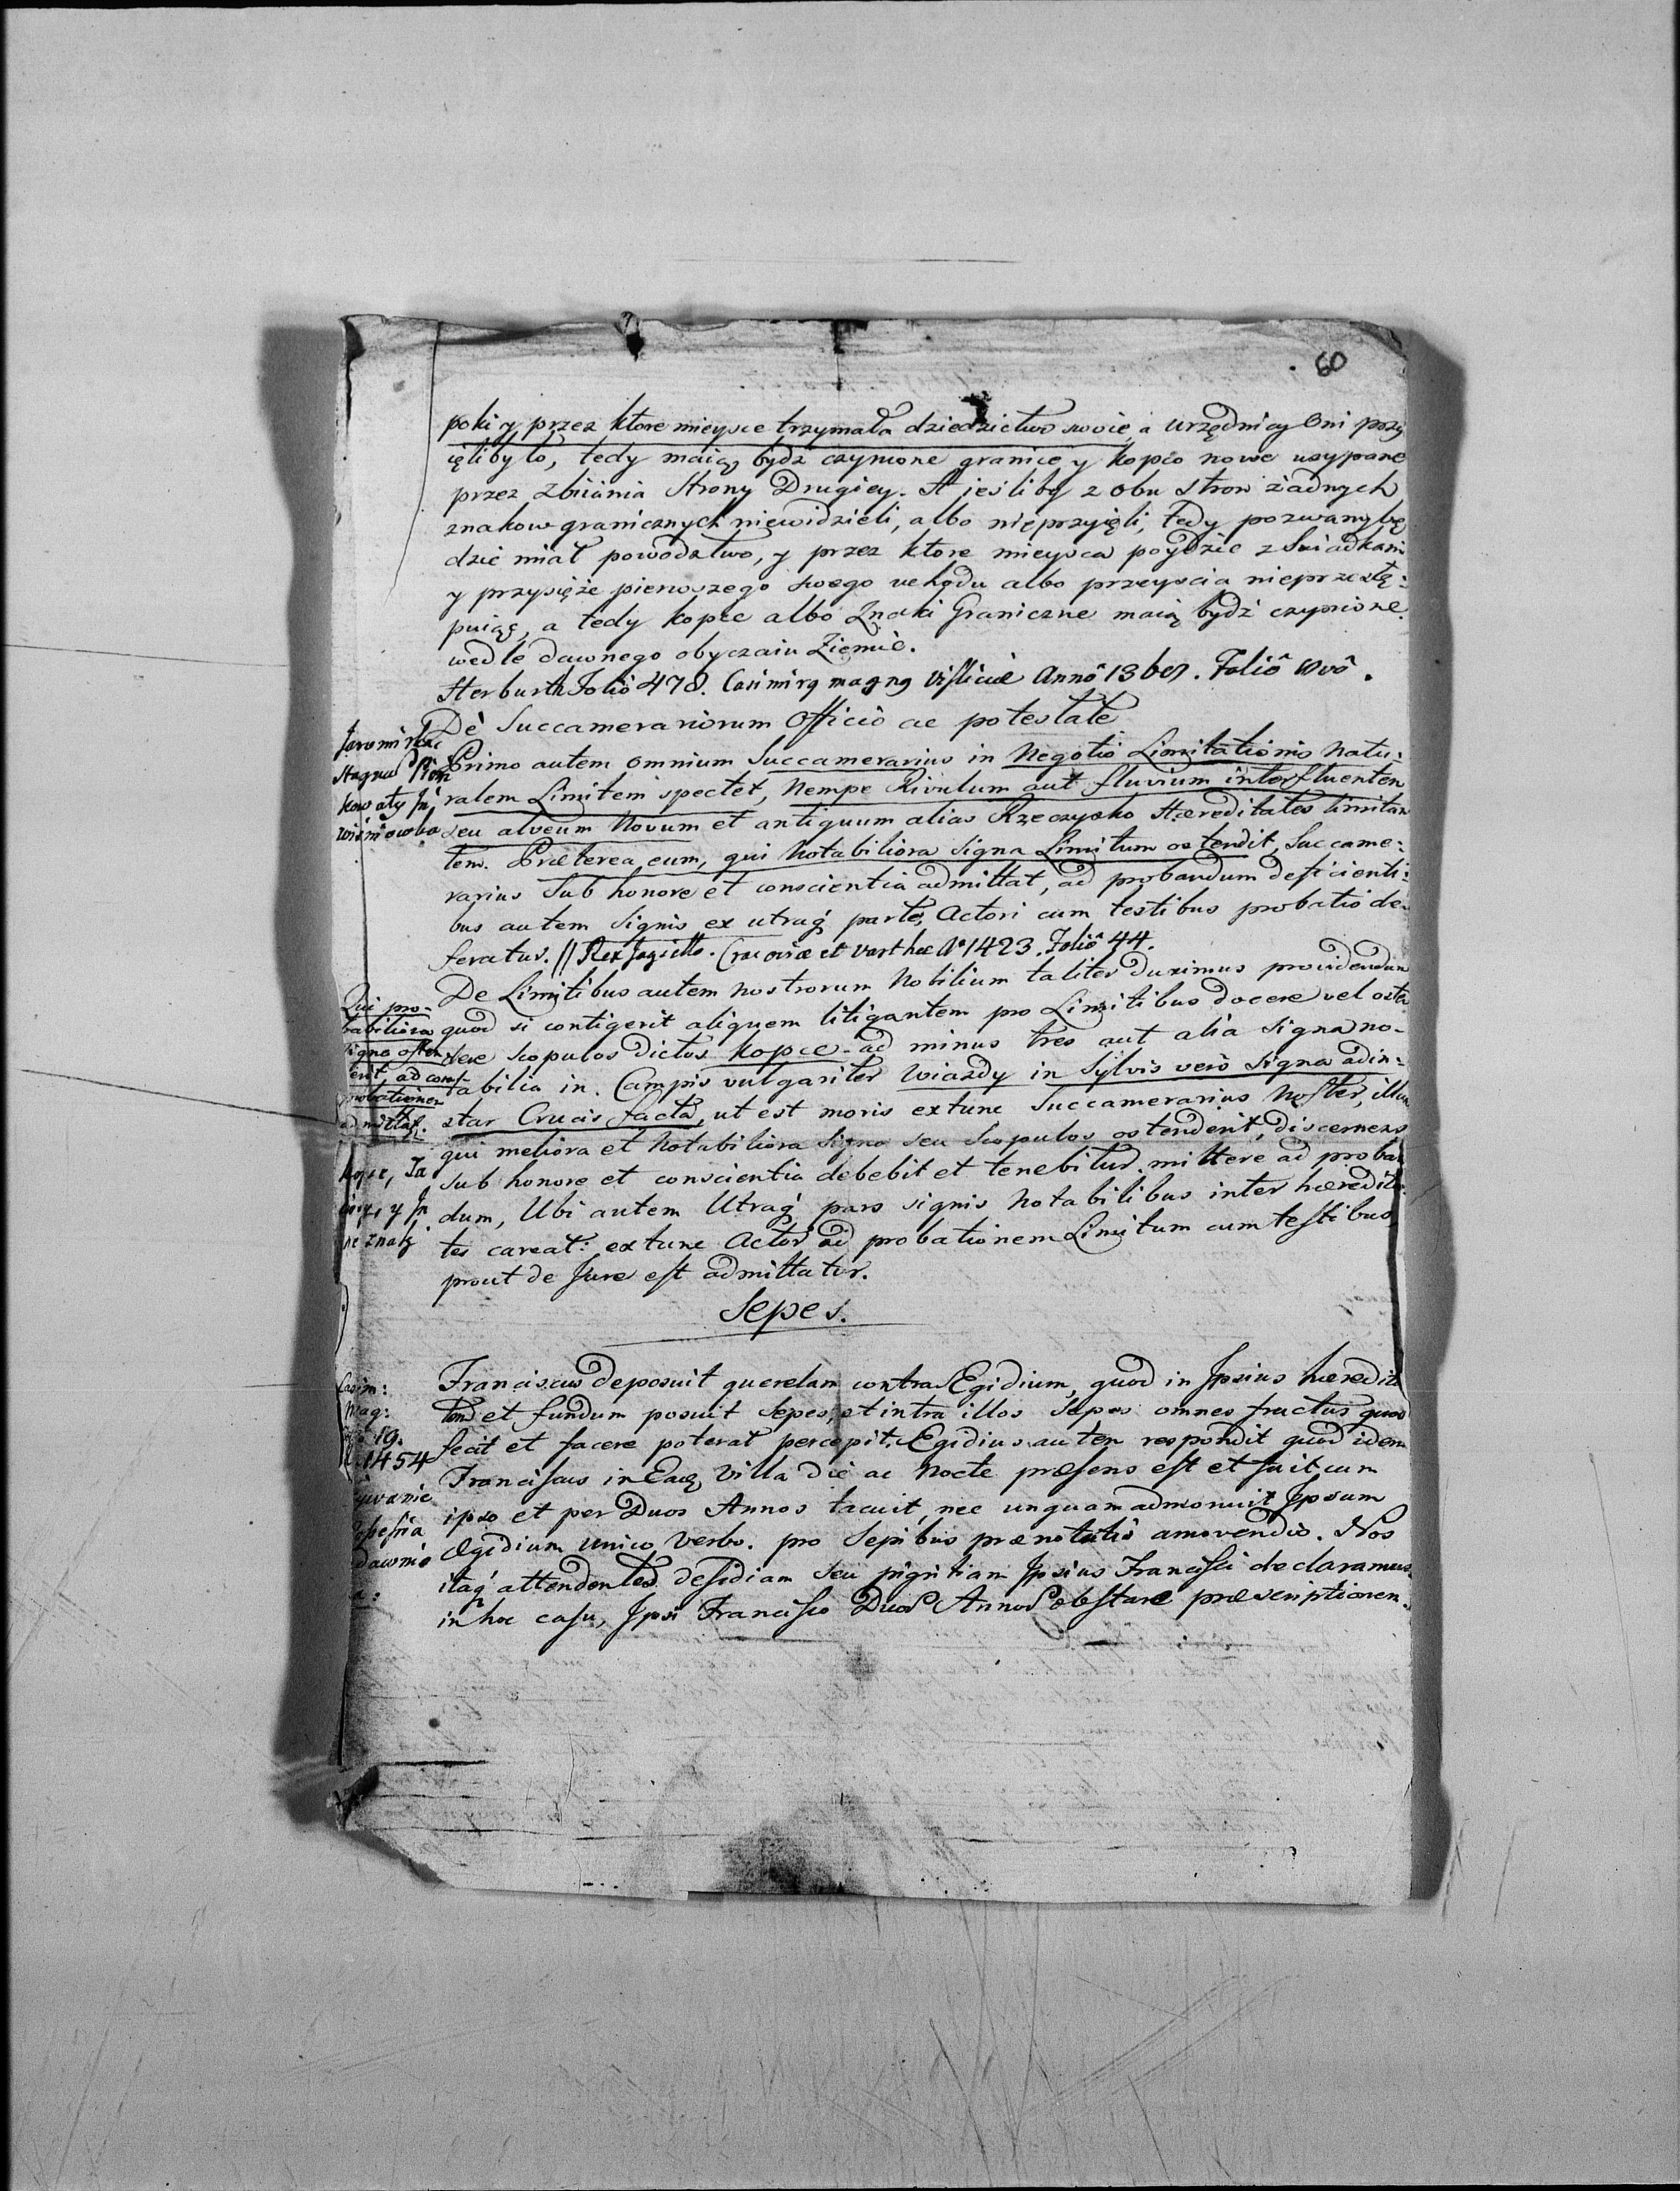 60
poki y przez ktore mieysce trzymała dziedzictwo swoie, a urzędnicy Oni przy
ięliby to, tedy maią bydź czynione granice y kopce nowe usypane
przez zbiiania Strony Drugiey. A ieśliby z obu stron żadnych
znakow granicznych niewidzieli, albo nieprzyięli, Tedy pozwany bę
dzie miał powodztwo, y przez ktore mieysca poydzie z Swiadkami
y przysięże pierwszego swego uchodu albo przeyscia nieprzestę:
puiąc, a tedy kopce albo Znaki Graniczne maią bydź czynione
wedle dawnego obyczaiu Ziemie.
Herburth Foliô 478. Casimirq magnq Visliciæ Annô Foliô
Dè Succamerariorum Officiô ac potestate
Primo autem omnium Succamerarius in Negotiô Limitationis Natu:
ralem Limitem spectet, Nempe Rivulum aut fluvium interfluentem
seu alveum Novum et antiquum alias Rzeczysko Hæreditates limitan
tem. Præterea eum, qui Notabiliora signa Limitum ostendit, Succame:
rarius Sub honore et conscientia admittat, ad probandum deficienti:
bus autem Signis ex utraq́ parte, Actori cum testibus probatio de
feratur. // Rex Jagiello. Cracoviæ et Varthæ Aº 1423. Foliô 44.
De Limitibus autem nostrorum Nobilium taliter duximus providendum
quod si contigerit aliquem litigantem pro Limitibus docere vel osten
dere scopulos dictos kopce - ad minus tres aut alia signa no-
tabilia in Campis vulgariter Wiazdy in Sylvis verò Signa ad in:
star Crucis facta, ut est moris extunc Succamerarius Noster, illum
qui meliora et Notabiliora Signa seu Scopulos ostenderit, discernens
sub honore et conscientia debebit et tenebitur mittere ad proban
dum, Ubi autem Utraq́ pars signis Notabilibus inter hæredita
tes careat: extunc Actor ad probationem Limitum cum testibus
prout de Jure est admittatur.
Sepes.
Franciscus deposuit querelam contra Egidium, quod in Ipsius hæredita
tem et fundum posuit Sepes, et intra illos Sepes omnes fructus quos
fecit et facere poterat percepit. Egidius autem respondit quod idem
Franciscus in Eadẽ Villa die ac Nocte præsens est et fuit cum
ipso et per Duos Annos tacuit, nec unquam admonuit Ipsum
Ægidium unico verbo pro Sepibus prænotatis amovendis. Nos
itaq́ attendentes desidiam seu pigritiam Ipsius Francisci declaramus
in hoc casu, Ipsi Francisco Duos Annos obstare præscriptionem.
Stagna
Qui pro-
babiliora
signa osten
derit, ad com-
probationem
admittat.
kopce,
znaki
Casim:
Mag:
19.
1454
dawnio